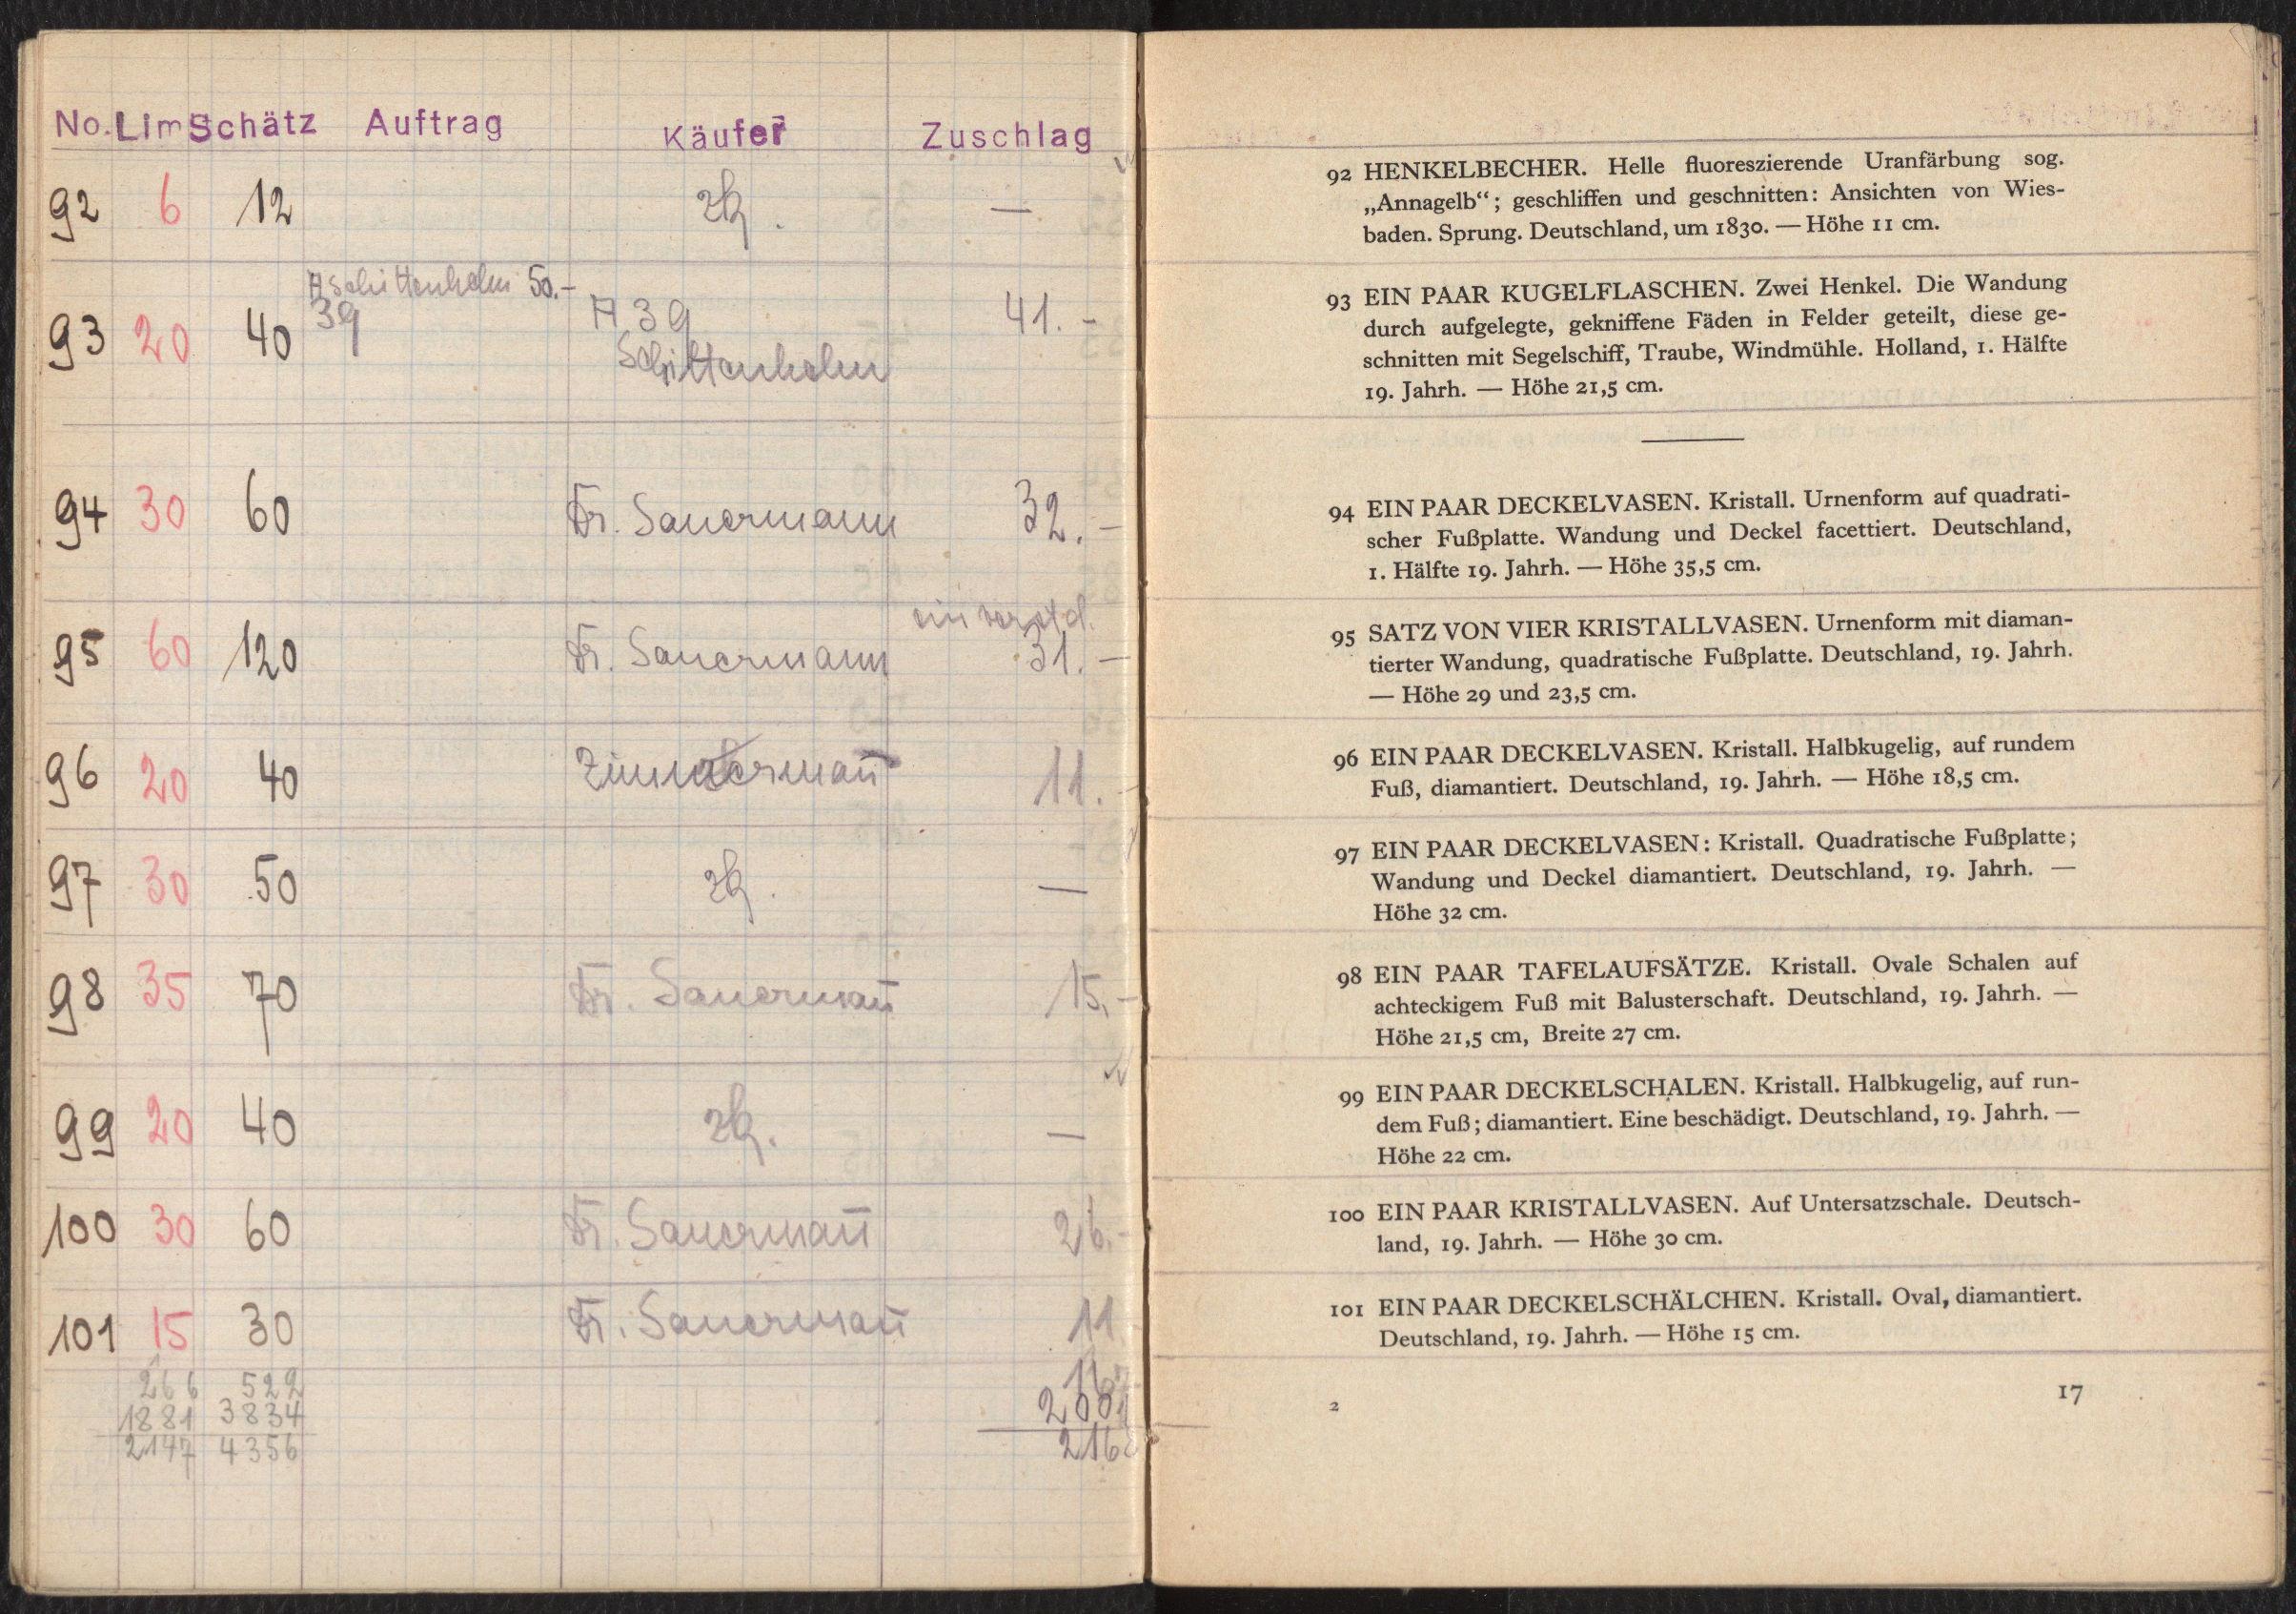 No. Lim Schätz Auftrag Käufer Zuschlag
92 6 12 zg. —
A Schittenhelm 50.-
93 20 40 39 A 39 41.-
Schittenhelm
94 30 60 Fr. Sauermann 32.-
einverstd.
95 60 120 Fr. Sauermann 31.-
96 20 40 Zimmermañ 11.-
97 30 50 zg. —
98 35 70 Fr. Sauermañ 15.-
99 20 40 zg. —
100 30 60 Fr. Sauermañ 26.-
101 15 30 Fr. Sauermañ 11
266 522
1881 3834
2147 4356
92 HENKELBECHER. Helle fluoreszierende Uranfärbung sog.
„Annagelb“; geschliffen und geschnitten: Ansichten von Wies-
baden. Sprung. Deutschland, um 1830. — Höhe 11 cm.
93 EIN PAAR KUGELFLASCHEN. Zwei Henkel. Die Wandung
durch aufgelegte, gekniffene Fäden in Felder geteilt, diese ge-
schnitten mit Segelschiff, Traube, Windmühle. Holland, 1. Hälfte
19. Jahrh. — Höhe 21,5 cm.
94 EIN PAAR DECKELVASEN. Kristall. Urnenform auf quadrati-
scher Fußplatte. Wandung und Deckel facettiert. Deutschland,
1. Hälfte 19. Jahrh. — Höhe 35,5 cm.
95 SATZ VON VIER KRISTALLVASEN. Urnenform mit diaman-
tierter Wandung, quadratische Fußplatte. Deutschland, 19. Jahrh.
— Höhe 29 und 23,5 cm.
96 EIN PAAR DECKELVASEN. Kristall. Halbkugelig, auf rundem
Fuß, diamantiert. Deutschland, 19. Jahrh. — Höhe 18,5 cm.
97 EIN PAAR DECKELVASEN: Kristall. Quadratische Fußplatte;
Wandung und Deckel diamantiert. Deutschland, 19. Jahrh. —
Höhe 32 cm.
98 EIN PAAR TAFELAUFSÄTZE. Kristall. Ovale Schalen auf
achteckigem Fuß mit Balusterschaft. Deutschland, 19. Jahrh. —
Höhe 21,5 cm, Breite 27 cm.
99 EIN PAAR DECKELSCHALEN. Kristall. Halbkugelig, auf run-
dem Fuß; diamantiert. Eine beschädigt. Deutschland, 19. Jahrh. —
Höhe 22 cm.
100 EIN PAAR KRISTALLVASEN. Auf Untersatzschale. Deutsch-
land, 19. Jahrh. — Höhe 30 cm.
101 EIN PAAR DECKELSCHÄLCHEN. Kristall. Oval, diamantiert.
Deutschland, 19. Jahrh. — Höhe 15 cm.
2 17